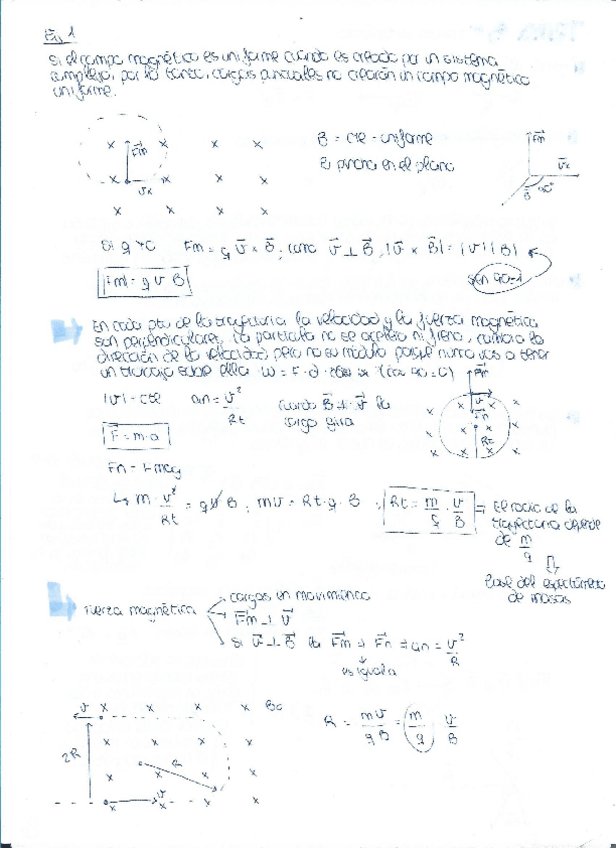 Ej 1
Si el campo magnético es uniforme cuando es creado por un sistema
complejo, por lo tanto, cargas puntuales no crearán un campo magnético
uniforme.
B = cte - uniforme
en el plano
Fm
Vx
B
90°
Fm
Vx
Si q > 0 Fm = q v x B; como v ⊥ B, |v x B| = |v| |B|
sen 90=1
|Fm| = q v B
En cada pto de la trayectoria la velocidad y la fuerza magnética
son perpendiculares, la partícula no se acelera ni frena, cambia la
dirección de la velocidad pero no su módulo porque nunca vas a tener
un trabajo sobre ella W = F · d · cos α (cos 90 = 0)
|v| = cte an = v²/Rt cuando B ⊥ v la
carga gira
F = m·a
Fm
v
Fn
Rt
Fn = Fmag
↳ m · v²/Rt = q v B ; mv = Rt · q · B ; Rt = m/q · v/B ⇒ El radio de la
trayectoria depende
de m/q
base del espectrómetro
de masas
Fuerza magnética
cargas en movimiento
Fm ⊥ v
Si v ⊥ B la Fm ⇒ Fn ⇒ an = v²/R
es igual a
v
Bo
2R
R
v
R = mv/qB = m/q · v/B